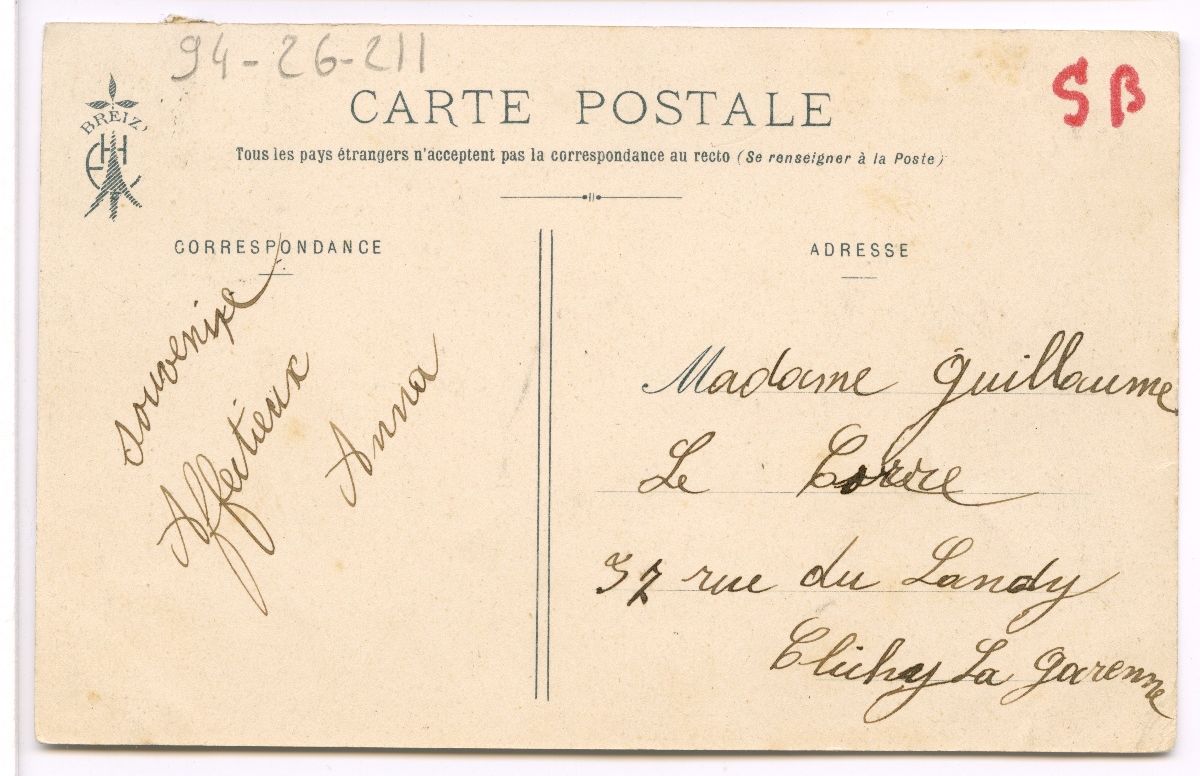 94-26-211
SB
BREIZ
CARTE POSTALE
Tous les pays étrangers n'acceptent pas la correspondance au recto (Se renseigner à la Poste)
CORRESPONDANCE
souvenire
Affectieux
Anna
ADRESSE
Madame Guillaume
Le Corre
37 rue du Landy
Clichy La Garenne